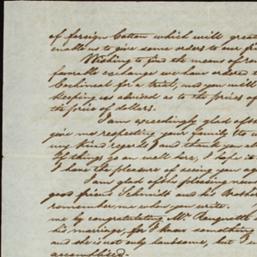 of foreign Cotton which will great
enable us to give some orders to our fri
Wishing to find the means of re
favorable exchange we have ordered
Cochineal for a trial, and you will
keeping us advised as to the prices of
the price of dollars.
I am exceedingly glad of the
give me respecting your family (to w
my kind regards) and thank you al
If things go on well here, I hope to
I have the pleasure of seeing you ag
I am glad of the pleasing
good friend Schmidt and his Brother
remember me when you write.
me by congratulating Mr.
his marriage, for I know something
and she is not only handsome, but I
accomplished.